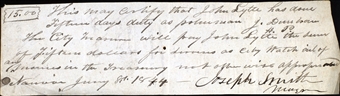 15.00 This may certify that John Lytle has done
Fifteen days duty as policeman J. Dunham
The City Treasurer will pay John Lytle the sum
of Fifteen dollars for services as City Watch out of
Monies in the Treasury not otherwise appropriated
Nauvoo Jany 8th 1844 Joseph Smith
Mayor